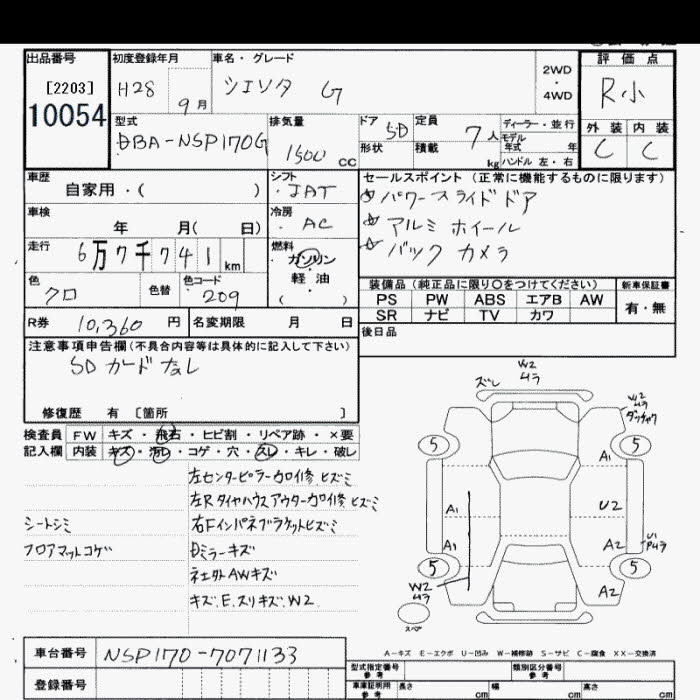 出品番号
[2203]
10054
初度登録年月
H28 9月
車名・グレード
シエンタ G
2WD
・
4WD
評価点
R小
型式
DBA-NSP170G
排気量
1500 cc
ドア 5D
形状
定員 7人
積載 kg
ディーラー・並行
モデル
年式 年
ハンドル 左・右
外装 内装
C C
車歴
自家用・( )
シフト
・JAT
車検
年 月( 日)
冷房
・AC
走行
6万7千741km
燃料
ガソリン
・
軽油
( )
色
クロ
色替
色コード
209
セールスポイント(正常に機能するものに限ります)
☆パワースライドドア
☆アルミホイール
☆バックカメラ
装備品(純正品に限り○をつけてください)
新車保証書
PS PW ABS エアB AW
SR ナビ TV カワ
有・無
R券 10,360円
名変期限 月 日
後日品
注意事項申告欄(不具合内容等は具体的に記入して下さい)
SDカードなし
修復歴 有 〔箇所 〕
検査員 FW キズ・飛石・ヒビ割・リペア跡・×要
記入欄 内装 キズ・汚レ・コゲ・穴・スレ・キレ・破レ
左センターピラー加修.ヒズミ
左Rタイヤハウスアウター加修.ヒズミ
シートシミ
右Fインパネブラケットヒズミ
フロアマットコゲ
Dミラーキズ
ネェクトAWキズ
キズ.E.スリキズ.W2
ズレ
W2
ムラ
W2
ムラ
5
5
A1
A1
U2
A1
A2
5
5
W2
ムラ
A2
スペア
A-キズ E-エクボ U-凹み W-補修跡 S-サビ C-腐食 XX-交換済
車台番号 NSP170-7071133
登録番号
型式指定番号
参考
類別区分番号
参考
車庫証明用
参考
長さ cm
幅 cm
高さ cm